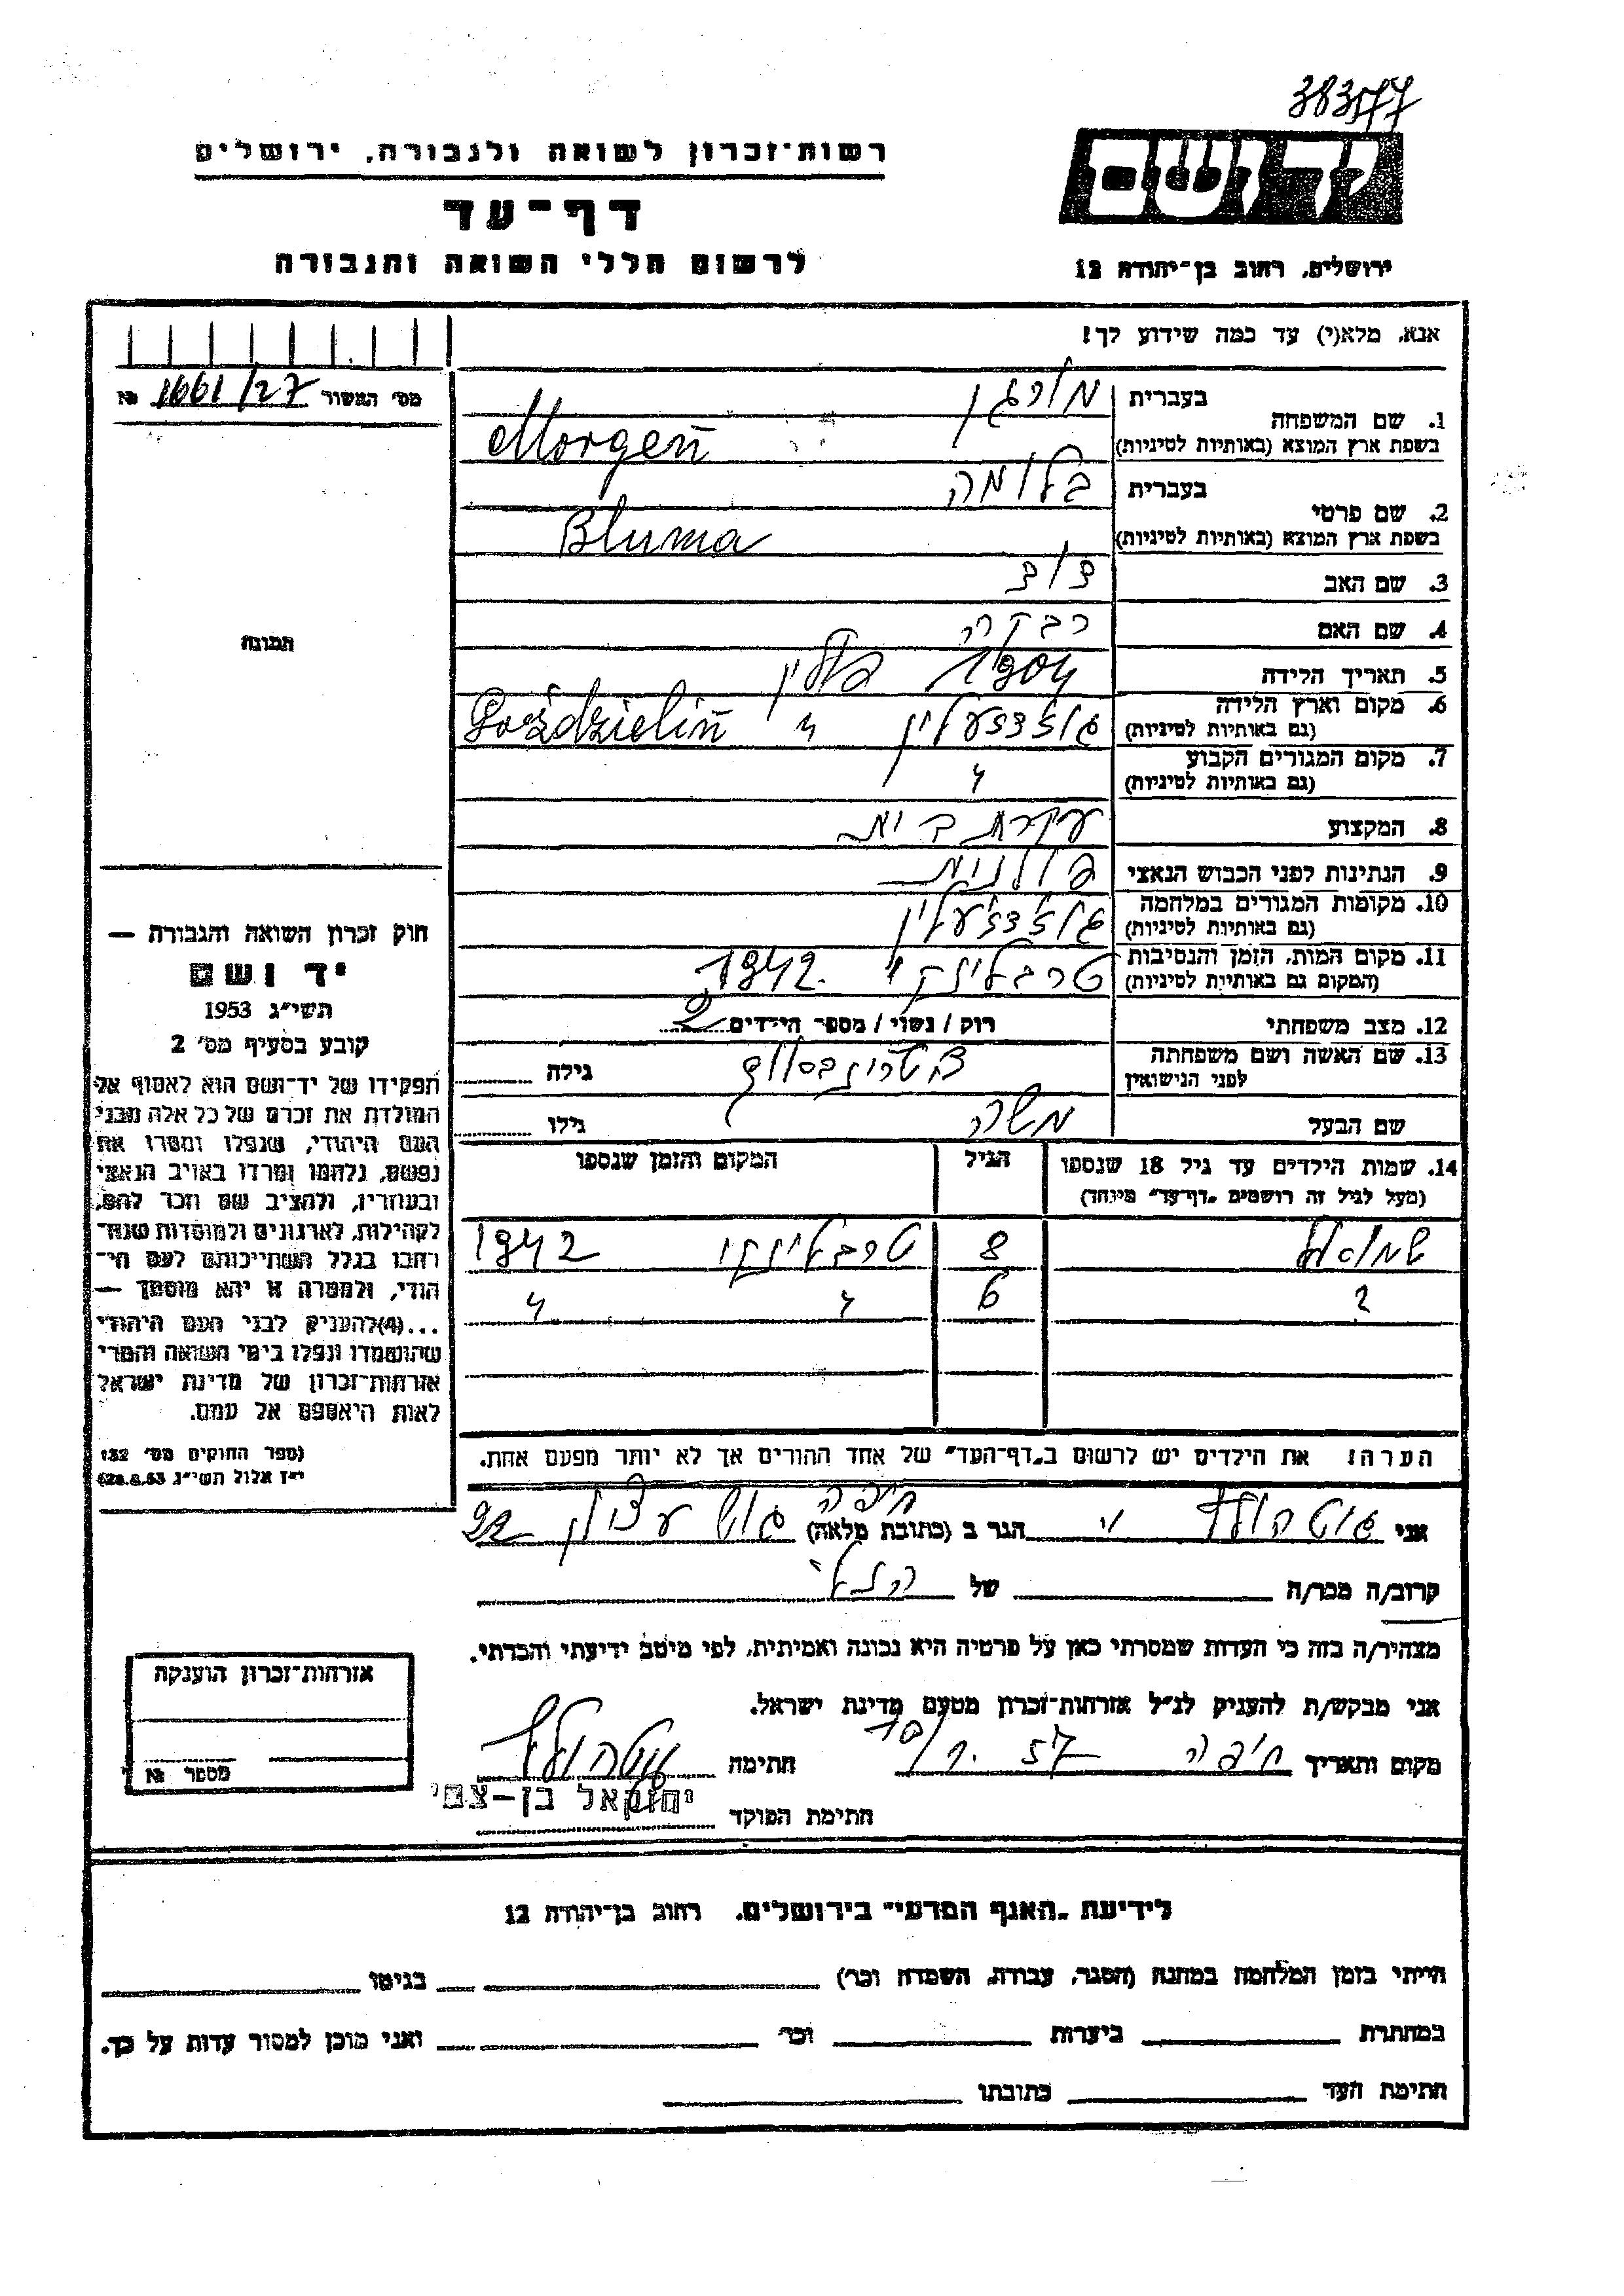 38377
רשות־זכרון לשואה ולגבורה, ירושלים
יד ושם
דף־עד
לרשום חללי השואה והגבורה
ירושלים, רחוב בן־יהודה 12
אנא, מלא(י) עד כמה שידוע לך!
מס' המשור № 1661/27
1. שם המשפחה בעברית מורגן
בשפת ארץ המוצא (באותיות לטיניות) Morgen
2. שם פרטי בעברית בלומה
בשפת ארץ המוצא (באותיות לטיניות) Bluma
3. שם האב דוד
4. שם האם רבקה
5. תאריך הלידה 1904
6. מקום וארץ הלידה פולין
(גם באותיות לטיניות) Goździelin
7. מקום המגורים הקבוע "
(גם באותיות לטיניות)
8. המקצוע עקרת בית
9. הנתינות לפני הכבוש הנאצי פולנית
10. מקומות המגורים במלחמה
(גם באותיות לטיניות)
11. מקום המות, הזמן והנסיבות טרבלינקי 1942
(המקום גם באותיות לטיניות)
12. מצב משפחתי רוק / נשוי / מספר הילדים 2
13. שם האשה ושם משפחתה
לפני הנישואין גילה
שם הבעל משה גילו
14. שמות הילדים עד גיל 18 שנספו הגיל המקום והזמן שנספו
(מעל לגיל זה רושמים "דף־עד" מיוחד)
שמואל 8 טרבלינקי 1942
? 6 " "
הערה: את הילדים יש לרשום ב"דף־העד" של אחד ההורים אך לא יותר מפעם אחת.
תמונה
חוק זכרון השואה והגבורה —
יד ושם
תשי"ג 1953
קובע בסעיף מס' 2
תפקידו של יד־ושם הוא לאסוף אל
המולדת את זכרם של כל אלה מבני
העם היהודי, שנפלו ומסרו את
נפשם, נלחמו ומרדו באויב הנאצי
ובעוזריו, ולהציב שם וזכר להם,
לקהילות, לארגונים ולמוסדות שנח־
רבו בגלל השתייכותם לעם הי־
הודי, ולמטרה זו יהא מוסמך —
...(4) להעניק לבני העם היהודי
שהושמדו ונפלו בימי השואה והמרי
אזרחות־זכרון של מדינת ישראל
לאות היאספם אל עמם.
(ספר החוקים מס' 132
י"ז אלול תשי"ג 28.8.53)
אני גוטהולד י' הגר ב (כתובת מלאה) חיפה גוש עציון 22
קרוב/ה מכר/ה של הנ"ל
מצהיר/ה בזה כי העדות שמסרתי כאן על פרטיה היא נכונה ואמיתית, לפי מיטב ידיעתי והכרתי.
אני מבקש/ת להעניק לנ"ל אזרחות־זכרון מטעם מדינת ישראל.
מקום ותאריך חיפה חתימה גוטהולד
חתימת הפוקד יחזקאל בן-צבי
אזרחות־זכרון הוענקה
מספר №
לידיעת "האגף המדעי" בירושלים, רחוב בן־יהודה 12
הייתי בזמן המלחמה במחנה (הסגר, עבודה, השמדה וכו') בגיטו
במחתרת ביערות וכו' ואני מוכן למסור עדות על כך.
חתימת העד כתובתו